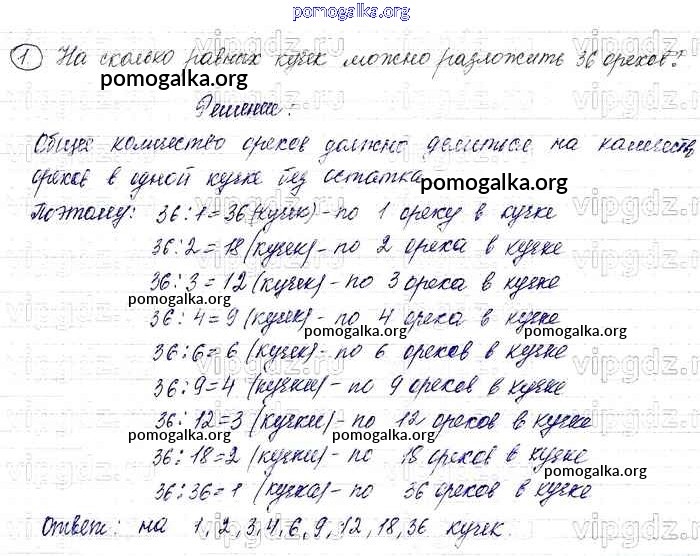 pomogalka.org
1. На сколько равных кучек можно разложить 36 орехов?
pomogalka.org
Решение:
Общее количество орехов должно делиться на количеств
орехов в одной кучке без остатка
pomogalka.org
Поэтому: 36:1=36 (кучек) - по 1 ореху в кучке
36:2=18 (кучек) - по 2 ореха в кучке
36:3=12 (кучек) - по 3 ореха в кучке
pomogalka.org
36:4=9 (кучек) - по 4 ореха в кучке
pomogalka.org pomogalka.org
36:6=6 (кучек) - по 6 орехов в кучке
36:9=4 (кучки) - по 9 орехов в кучке
36:12=3 (кучки) - по 12 орехов в кучке
pomogalka.org pomogalka.org
36:18=2 (кучки) - по 18 орехов в кучке
pomogalka.org
36:36=1 (кучка) - по 36 орехов в кучке
Ответ: на 1,2,3,4,6,9,12,18,36 кучек.